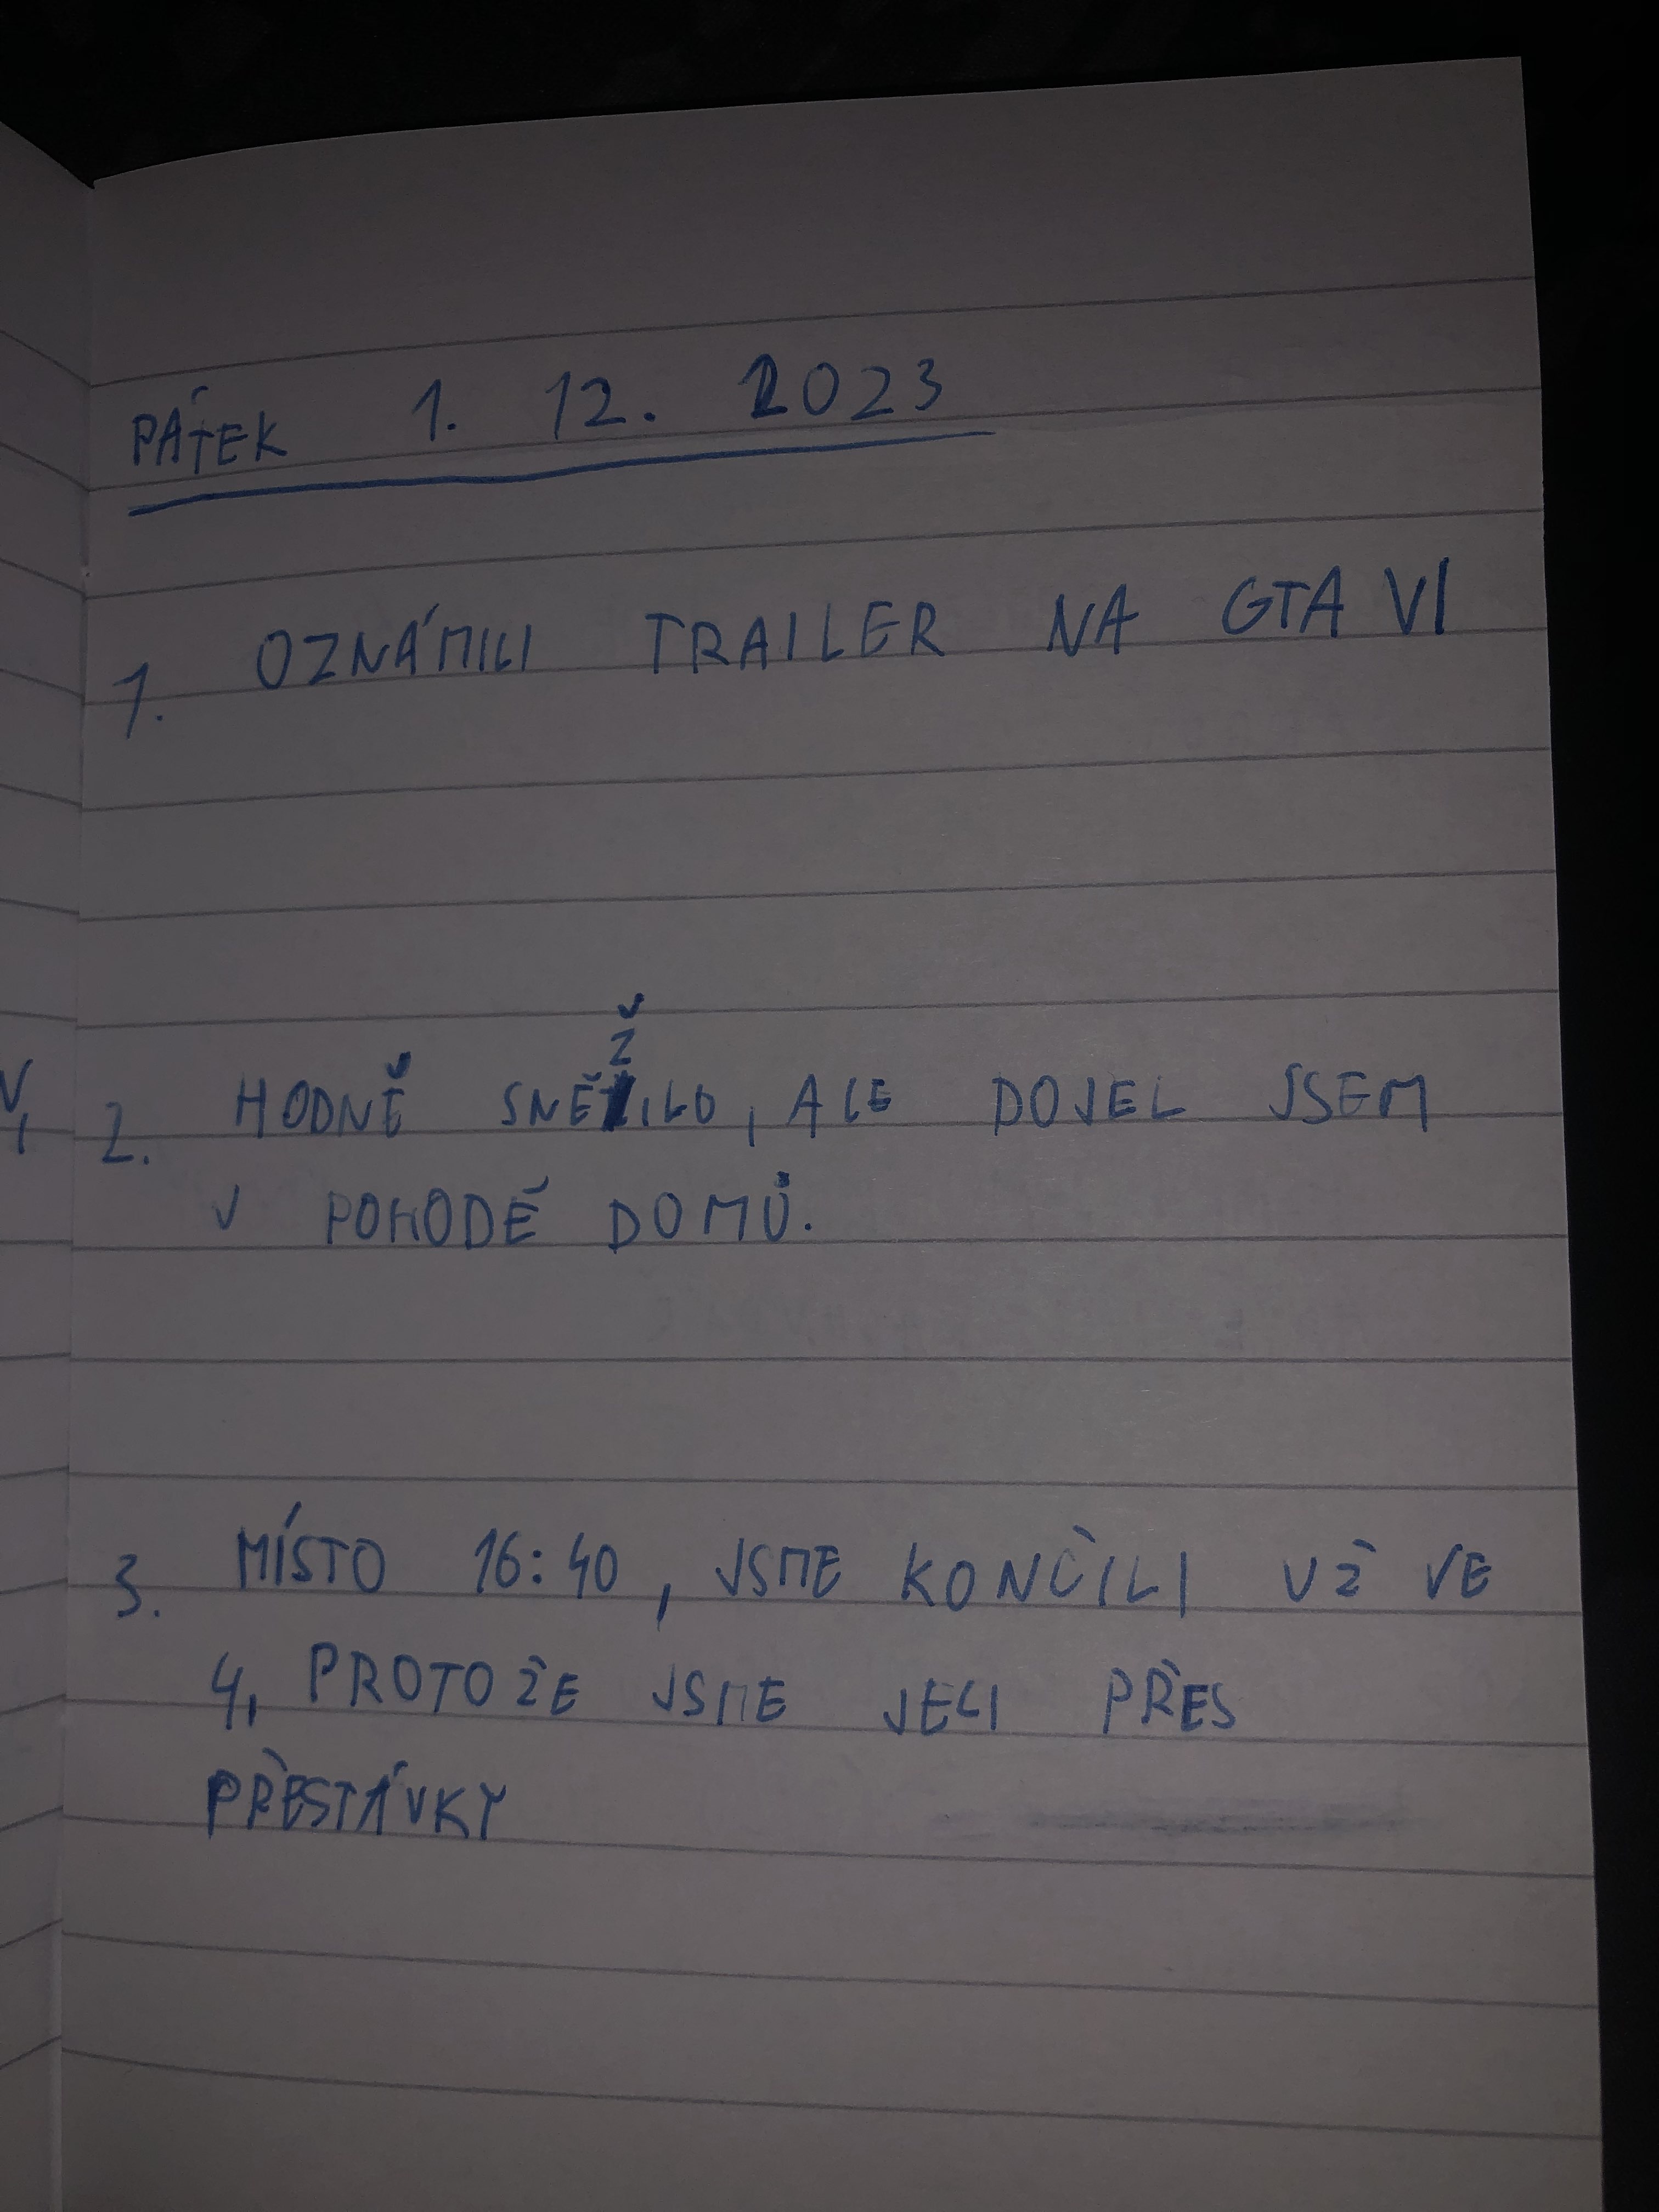 PÁTEK 1. 12. 2023
1. OZNÁMILI TRAILER NA GTA VI
2. HODNĚ SNĚŽILO, ALE DOJEL JSEM
V POHODĚ DOMŮ.
3. MÍSTO 16:40, JSME KONČILI UŽ VE
4, PROTOŽE JSME JELI PŘES
PŘESTÁVKY